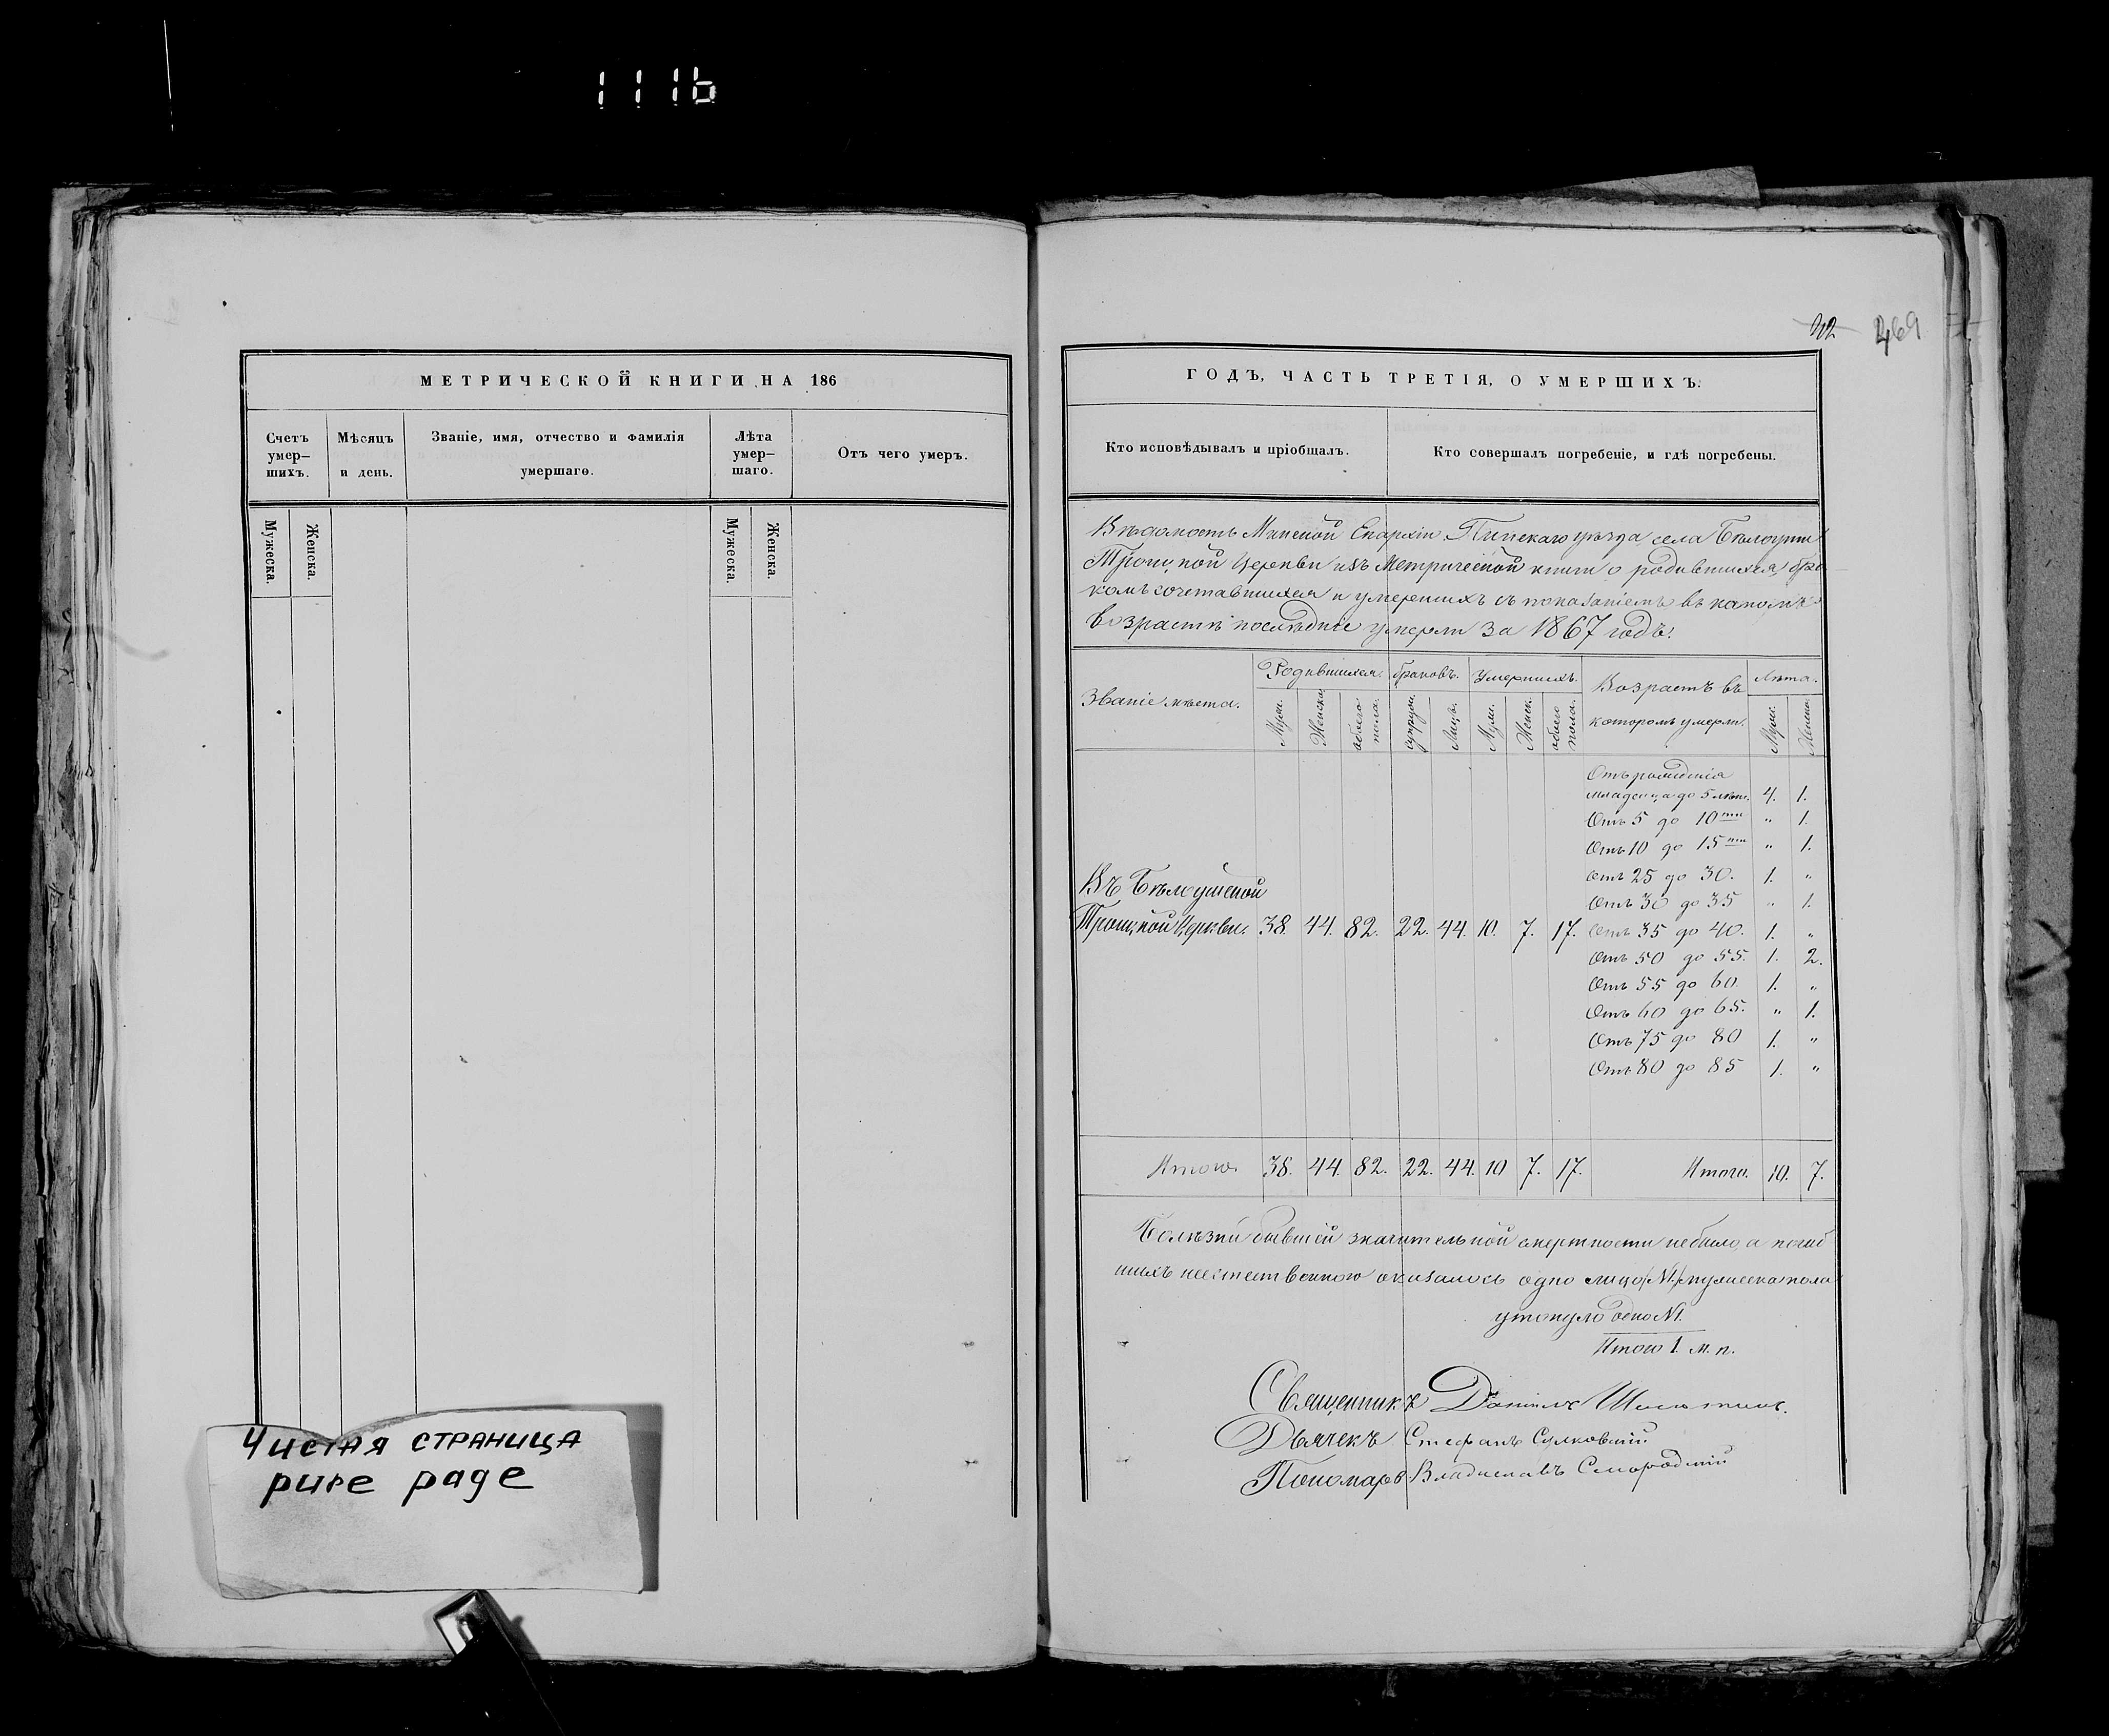 1116
МЕТРИЧЕСКОЙ КНИГИ НА 186
Счетъ умер- шихъ.
Мѣсяцъ и день.
Званіе, имя, отчество и фамилія умершаго.
Лѣта умер- шаго.
Отъ чего умеръ.
Мужеска.
Женска.
Мужеска.
Женска.
Чистая страница
pure page
42 469
ГОДЪ, ЧАСТЬ ТРЕТІЯ, О УМЕРШИХЪ.
Кто исповѣдывалъ и пріобщалъ.
Кто совершалъ погребеніе, и гдѣ погребены.
Вѣдомость Минской Епархіи Пинскаго уѣзда села Бѣлоуши
Троицкой Церкви изъ Метрической книги о родившихся, бра
комъ сочетавшихся и умершихъ съ показаніемъ въ какомъ
возрастѣ послѣдніе умерли за 1867 годъ.
Званіе мѣста. Родившихся. Браковъ. Умершихъ. Возрастъ въ которомъ умерли. Лѣта.
Муж. Женска обоего пола. супруж. Лицъ. Муж. Женск. обоего пола. Муж. Женска
Отъ рожденія
младенца до 5 лѣт. 4. 1.
Отъ 5 до 10 ти „ 1.
Отъ 10 до 15 ти „ 1.
Отъ 25 до 30. 1. „
Въ Бѣлоушской
Отъ 30 до 35 „ 1.
Троицкой Церкви. 38. 44. 82. 22. 44. 10. 7. 17. Отъ 35 до 40. 1. „
Отъ 50 до 55. 1. 2.
Отъ 55 до 60. 1. „
Отъ 60 до 65. „ 1.
Отъ 75 до 80 1. „
Отъ 80 до 85 1. „
Итого. 38. 44. 82. 22. 44. 10 7. 17. Итого. 10. 7.
Болѣзни бывшей значительной смертности не было, а погиб
шихъ неестественною оказалось одно лицо /№1./ мужеска пола
утонуло одно №1.
Итого 1. м. п.
Священникъ Даніилъ
Дьячекъ Стефанъ Сулковскій
Пономарь Владиславъ Смородскій